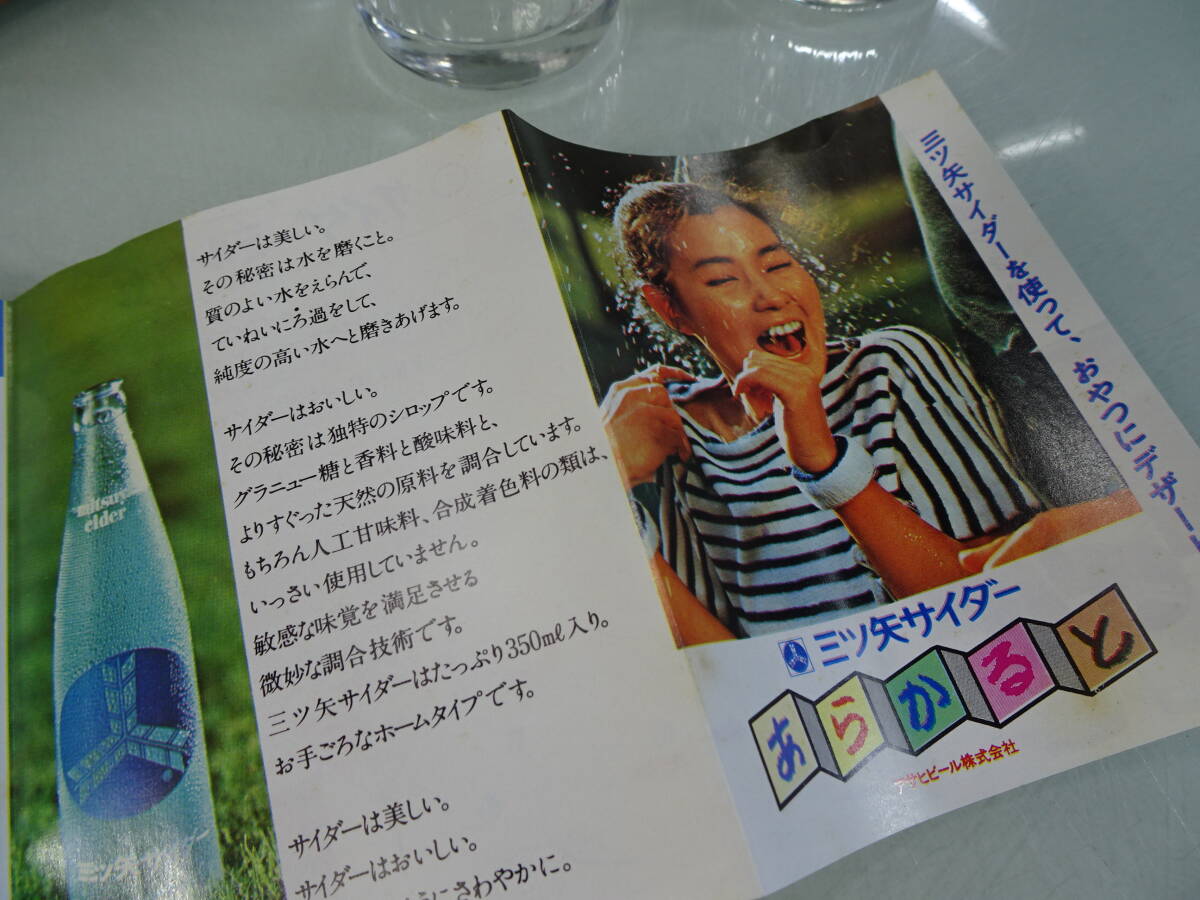 mitsuya
cider
三ツ矢サイダー
サイダーは美しい。
その秘密は水を磨くこと。
質のよい水をえらんで、
ていねいにろ過をして、
純度の高い水へと磨きあげます。
サイダーはおいしい。
その秘密は独特のシロップです。
グラニュー糖と香料と酸味料と、
よりすぐった天然の原料を調合しています。
もちろん人工甘味料、合成着色料の類は、
いっさい使用していません。
敏感な味覚を満足させる
微妙な調合技術です。
三ツ矢サイダーはたっぷり350ml入り。
お手ごろなホームタイプです。
サイダーは美しい。
サイダーはおいしい。
うにさわやかに。
三ツ矢サイダーを使って、おやつにデザート
三ツ矢サイダー
あらかると
アサヒビール株式会社